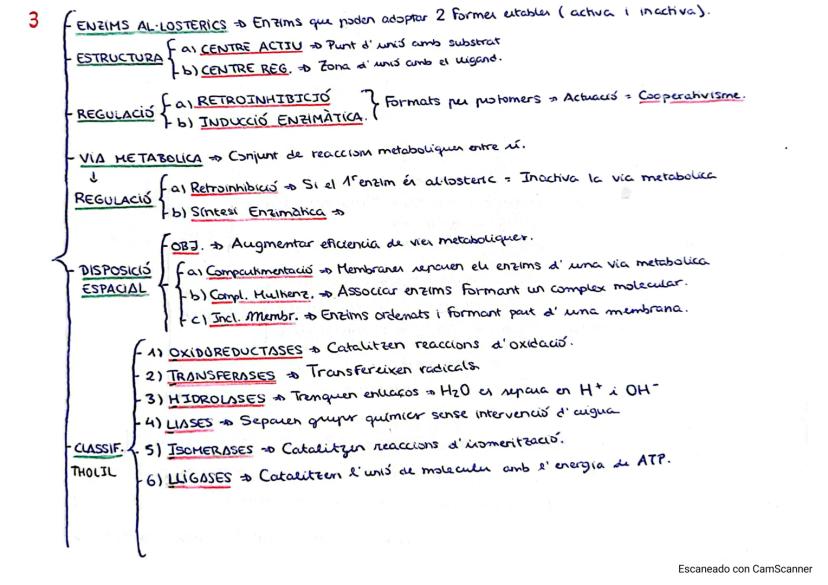 3
ENZIMS AL·LOSTERICS ⇒ Enzims que poden adoptar 2 formes estables (activa i inactiva).
ESTRUCTURA
a) CENTRE ACTIU ⇒ Punt d'unió amb substrat
b) CENTRE REG. ⇒ Zona d'unió amb el lligand.
REGULACIÓ
a) RETROINHIBICIÓ
b) INDUCCIÓ ENZIMÀTICA.
Formats per protomers ⇒ Actuació = Cooperativisme.
VIA METABOLICA ⇒ Conjunt de reaccions metaboliques entre sí.
↓
REGULACIÓ
a) Retroinhibició ⇒ Si el 1r enzim és al·losteric = Inactiva la via metabolica
b) Síntesi Enzimàtica ⇒
DISPOSICIÓ ESPACIAL
OBJ. ⇒ Augmentar eficiencia de vies metaboliques.
a) Compartimentació ⇒ Membranes separen els enzims d'una via metabolica
b) Compl. Multienz. ⇒ Associar enzims formant un complex molecular.
c) Incl. Membr. ⇒ Enzims ordenats i formant part d'una membrana.
CLASSIF.
THOLIL
1) OXIDOREDUCTASES ⇒ Catalitzen reaccions d'oxidació.
2) TRANSFERASES ⇒ Transfereixen radicals
3) HIDROLASES ⇒ Trenquen enllaços ⇒ H2O es separa en H+ i OH-
4) LIASES ⇒ Separen grups químics sense intervenció d'aigua
5) ISOMERASES ⇒ Catalitzen reaccions d'isomerització.
6) LLIGASES ⇒ Catalitzen l'unió de molecules amb l'energia de ATP.
Escaneado con CamScanner